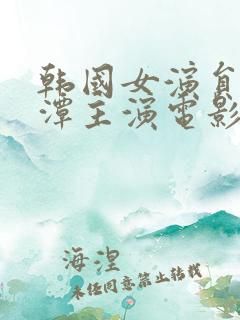 韩国女演员
潭主演电影
海涅
未经同意禁止转载